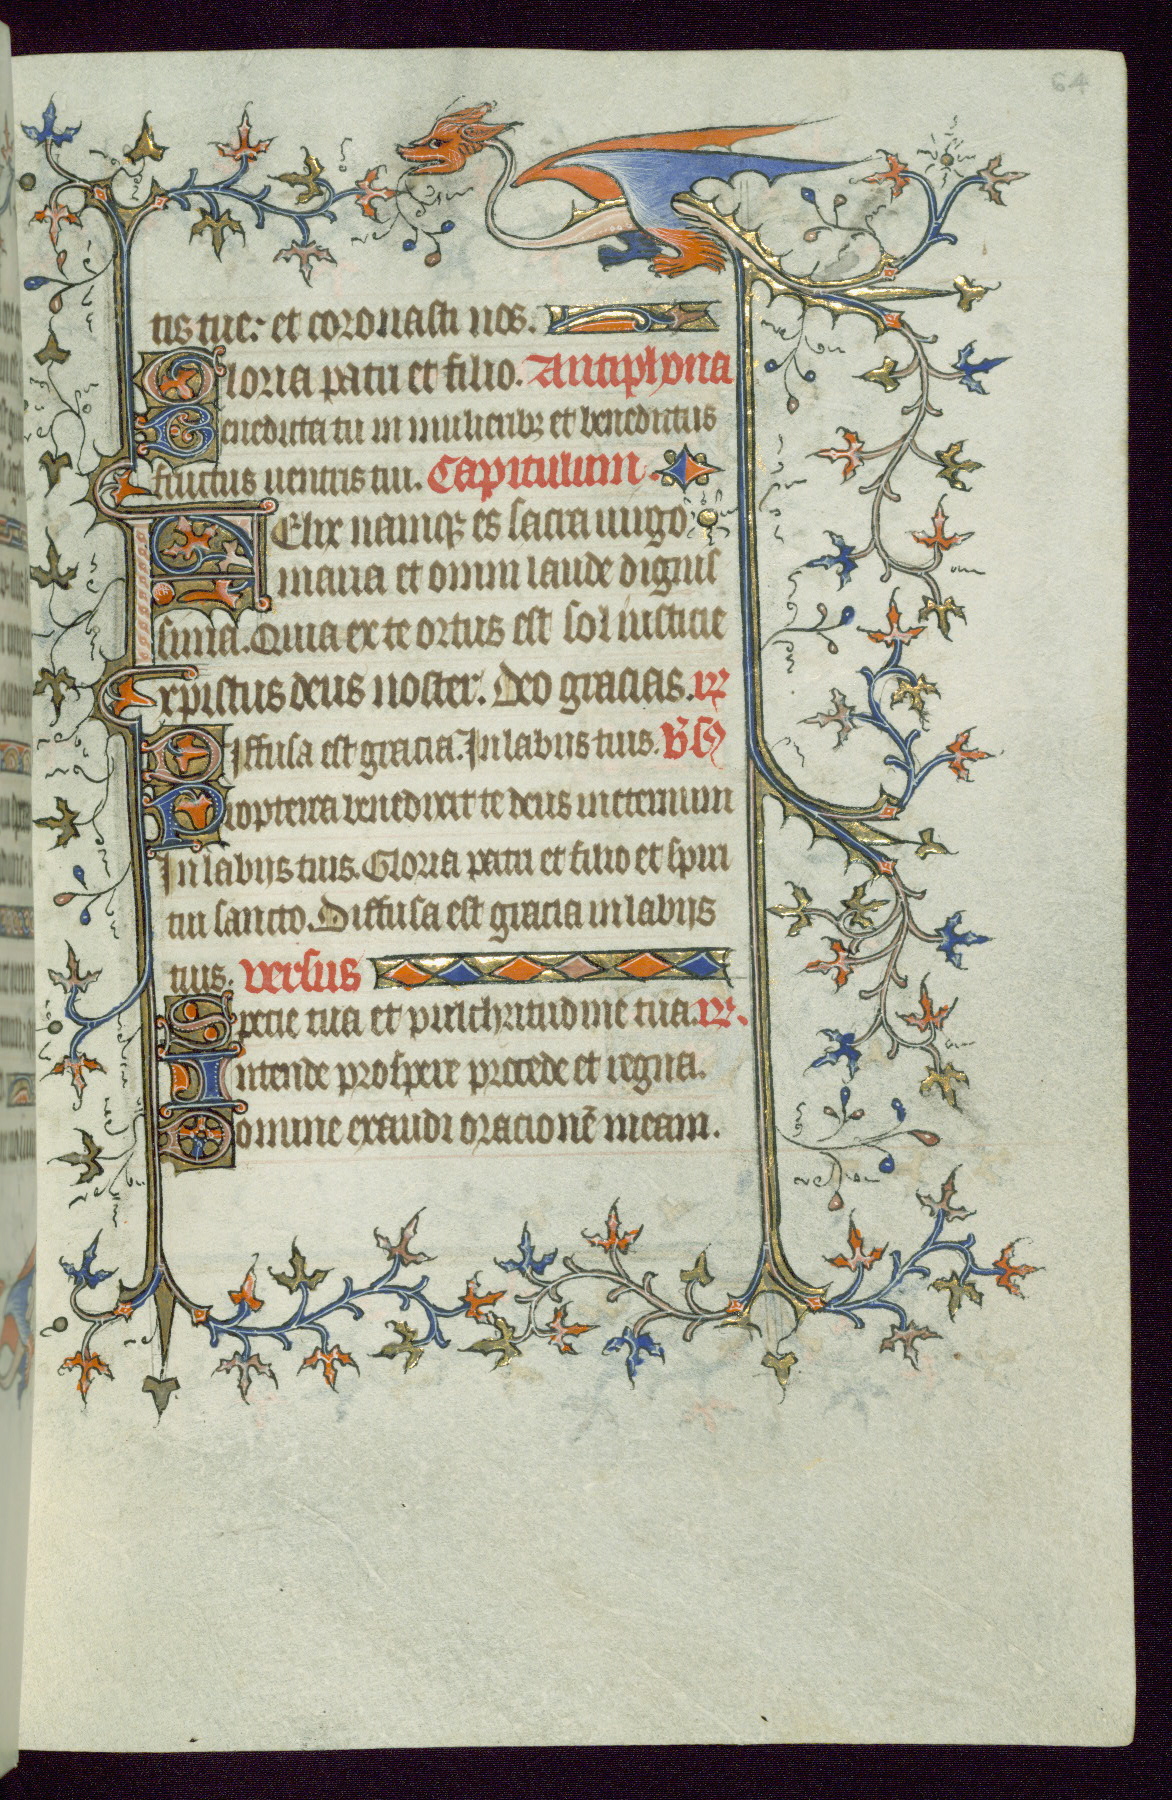 64
tis tue: et coronasti nos.
Gloria patri et filio. Antiphona
Benedicta tu in mulierib⁊ et benedictus
fructus uentris tui. Capitulum.
Felix namq⁊ es sacra uirgo
maria et omni laude dignis
sima. Quia ex te ortus est sol iusticie
xpistus deus noster. Deo gracias. R
Diffusa est gracia. In labijs tuis. Vs
Propterea benedixit te deus in eternum
In labijs tuis. Gloria patri et filio et spiri
tui sancto. Diffusa est gracia in labijs
tuis. versus
Specie tua et pulchritudine tua. R.
Intende prospere procede et regna.
Domine exaudi oracionē meam.